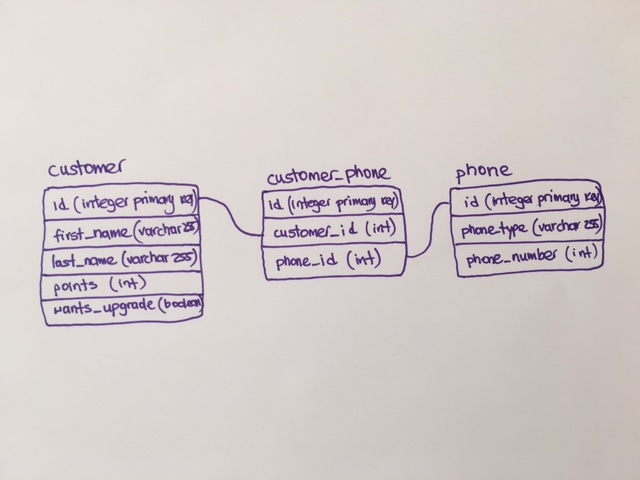 customer
id (integer primary key)
first_name (varchar 255)
last_name (varchar 255)
points (int)
wants_upgrade (boolean)
customer_phone
id (integer primary key)
customer_id (int)
phone_id (int)
phone
id (integer primary key)
phone_type (varchar 255)
phone_number (int)